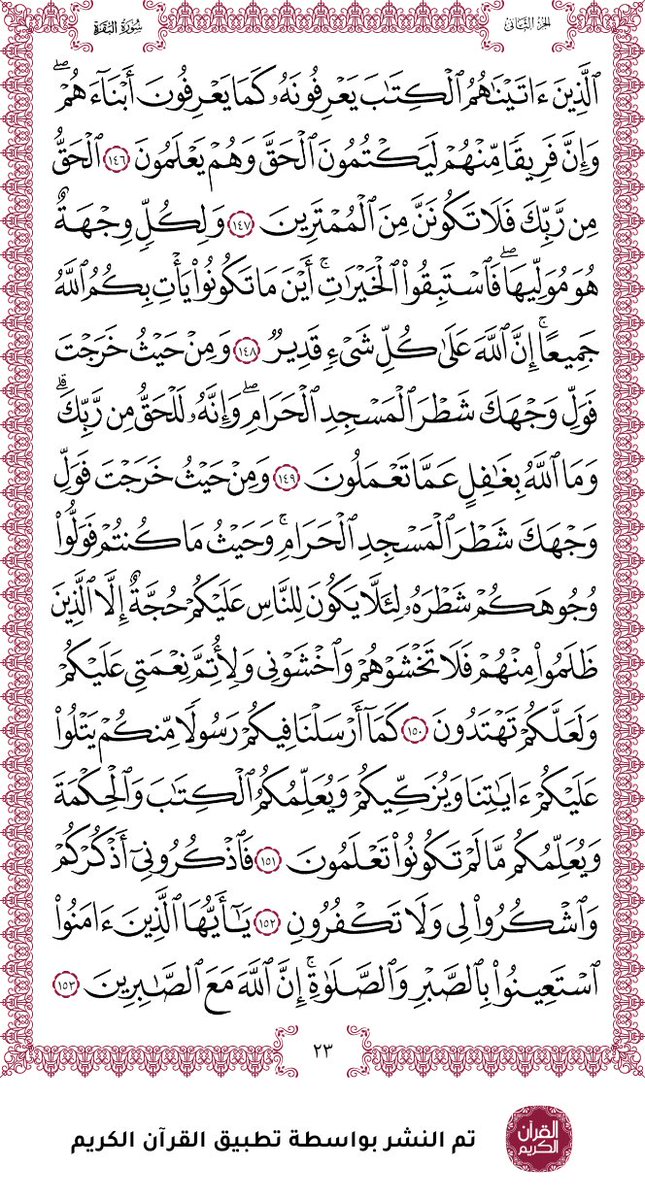 الجزء الثاني
سورة البقرة
ٱلَّذِينَ ءَاتَيْنَٰهُمُ ٱلْكِتَٰبَ يَعْرِفُونَهُۥ كَمَا يَعْرِفُونَ أَبْنَآءَهُمْ ۖ
وَإِنَّ فَرِيقًا مِّنْهُمْ لَيَكْتُمُونَ ٱلْحَقَّ وَهُمْ يَعْلَمُونَ ١٤٦ ٱلْحَقُّ
مِن رَّبِّكَ فَلَا تَكُونَنَّ مِنَ ٱلْمُمْتَرِينَ ١٤٧ وَلِكُلٍّ وِجْهَةٌ
هُوَ مُوَلِّيهَا ۖ فَٱسْتَبِقُوا۟ ٱلْخَيْرَٰتِ ۚ أَيْنَ مَا تَكُونُوا۟ يَأْتِ بِكُمُ ٱللَّهُ
جَمِيعًا ۚ إِنَّ ٱللَّهَ عَلَىٰ كُلِّ شَىْءٍ قَدِيرٌ ١٤٨ وَمِنْ حَيْثُ خَرَجْتَ
فَوَلِّ وَجْهَكَ شَطْرَ ٱلْمَسْجِدِ ٱلْحَرَامِ ۖ وَإِنَّهُۥ لَلْحَقُّ مِن رَّبِّكَ ۗ
وَمَا ٱللَّهُ بِغَٰفِلٍ عَمَّا تَعْمَلُونَ ١٤٩ وَمِنْ حَيْثُ خَرَجْتَ فَوَلِّ
وَجْهَكَ شَطْرَ ٱلْمَسْجِدِ ٱلْحَرَامِ ۚ وَحَيْثُ مَا كُنتُمْ فَوَلُّوا۟
وُجُوهَكُمْ شَطْرَهُۥ لِئَلَّا يَكُونَ لِلنَّاسِ عَلَيْكُمْ حُجَّةٌ إِلَّا ٱلَّذِينَ
ظَلَمُوا۟ مِنْهُمْ فَلَا تَخْشَوْهُمْ وَٱخْشَوْنِى وَلِأُتِمَّ نِعْمَتِى عَلَيْكُمْ
وَلَعَلَّكُمْ تَهْتَدُونَ ١٥٠ كَمَآ أَرْسَلْنَا فِيكُمْ رَسُولًا مِّنكُمْ يَتْلُوا۟
عَلَيْكُمْ ءَايَٰتِنَا وَيُزَكِّيكُمْ وَيُعَلِّمُكُمُ ٱلْكِتَٰبَ وَٱلْحِكْمَةَ
وَيُعَلِّمُكُم مَّا لَمْ تَكُونُوا۟ تَعْلَمُونَ ١٥١ فَٱذْكُرُونِىٓ أَذْكُرْكُمْ
وَٱشْكُرُوا۟ لِى وَلَا تَكْفُرُونِ ١٥٢ يَٰٓأَيُّهَا ٱلَّذِينَ ءَامَنُوا۟
ٱسْتَعِينُوا۟ بِٱلصَّبْرِ وَٱلصَّلَوٰةِ ۚ إِنَّ ٱللَّهَ مَعَ ٱلصَّٰبِرِينَ ١٥٣
٢٣
القرآن
الكريم
تم النشر بواسطة تطبيق القرآن الكريم